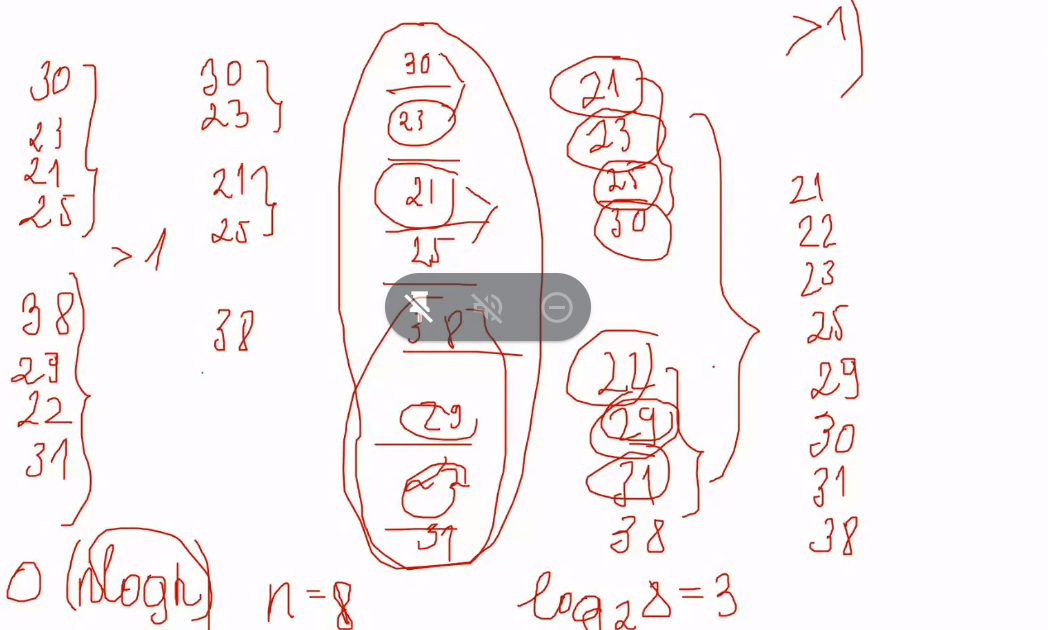 >1)
30
23
21
25
>1
38
29
22
31
30
23
21
25
38
30
23
21
25
38
29
31
21
23
25
30
22
29
31
38
21
22
23
25
29
30
31
38
O(nlogn)
n=8
log₂8=3